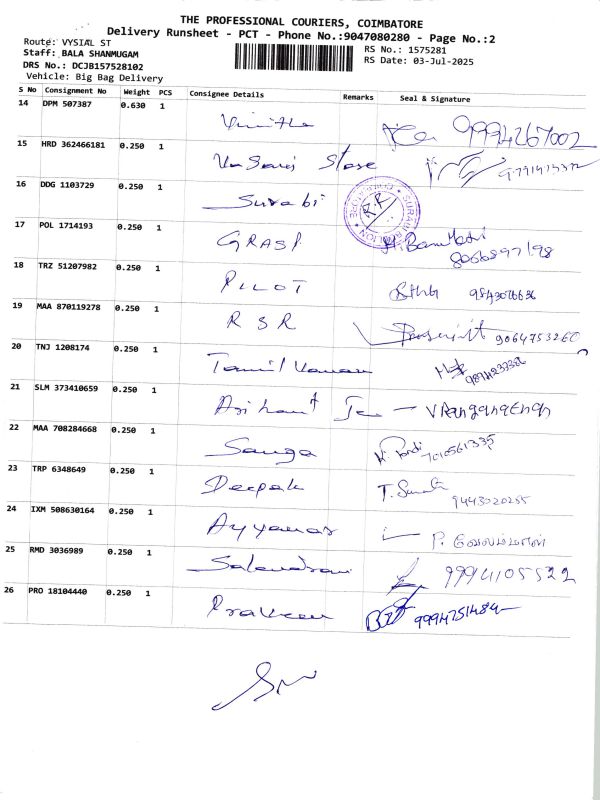 THE PROFESSIONAL COURIERS, COIMBATORE
Delivery Runsheet - PCT - Phone No.:9047080280 - Page No.:2
Route: VYSIAL ST
Staff: BALA SHANMUGAM
DRS No.: DCJB157528102
Vehicle: Big Bag Delivery
RS No.: 1575281
RS Date: 03-Jul-2025
S No Consignment No Weight PCS Consignee Details Remarks Seal & Signature
14 DPM 507387 0.630 1 Vinitha 9994267002
15 HRD 362466181 0.250 1 Store
16 DDG 1103729 0.250 1 Surabi
17 POL 1714193 0.250 1 GRASP
18 TRZ 51207982 0.250 1 PILOT
19 MAA 870119278 0.250 1 RSR 9064753260
20 TNJ 1208174 0.250 1
21 SLM 373410659 0.250 1 Arihant
22 MAA 708284668 0.250 1 Sanga 7010561335
23 TRP 6348649 0.250 1 Deepak 9443020255
24 IXM 508630164 0.250 1 Ayyanar
25 RMD 3036989 0.250 1 9994105522
26 PRO 18104440 0.250 1 Praveen 9994751484